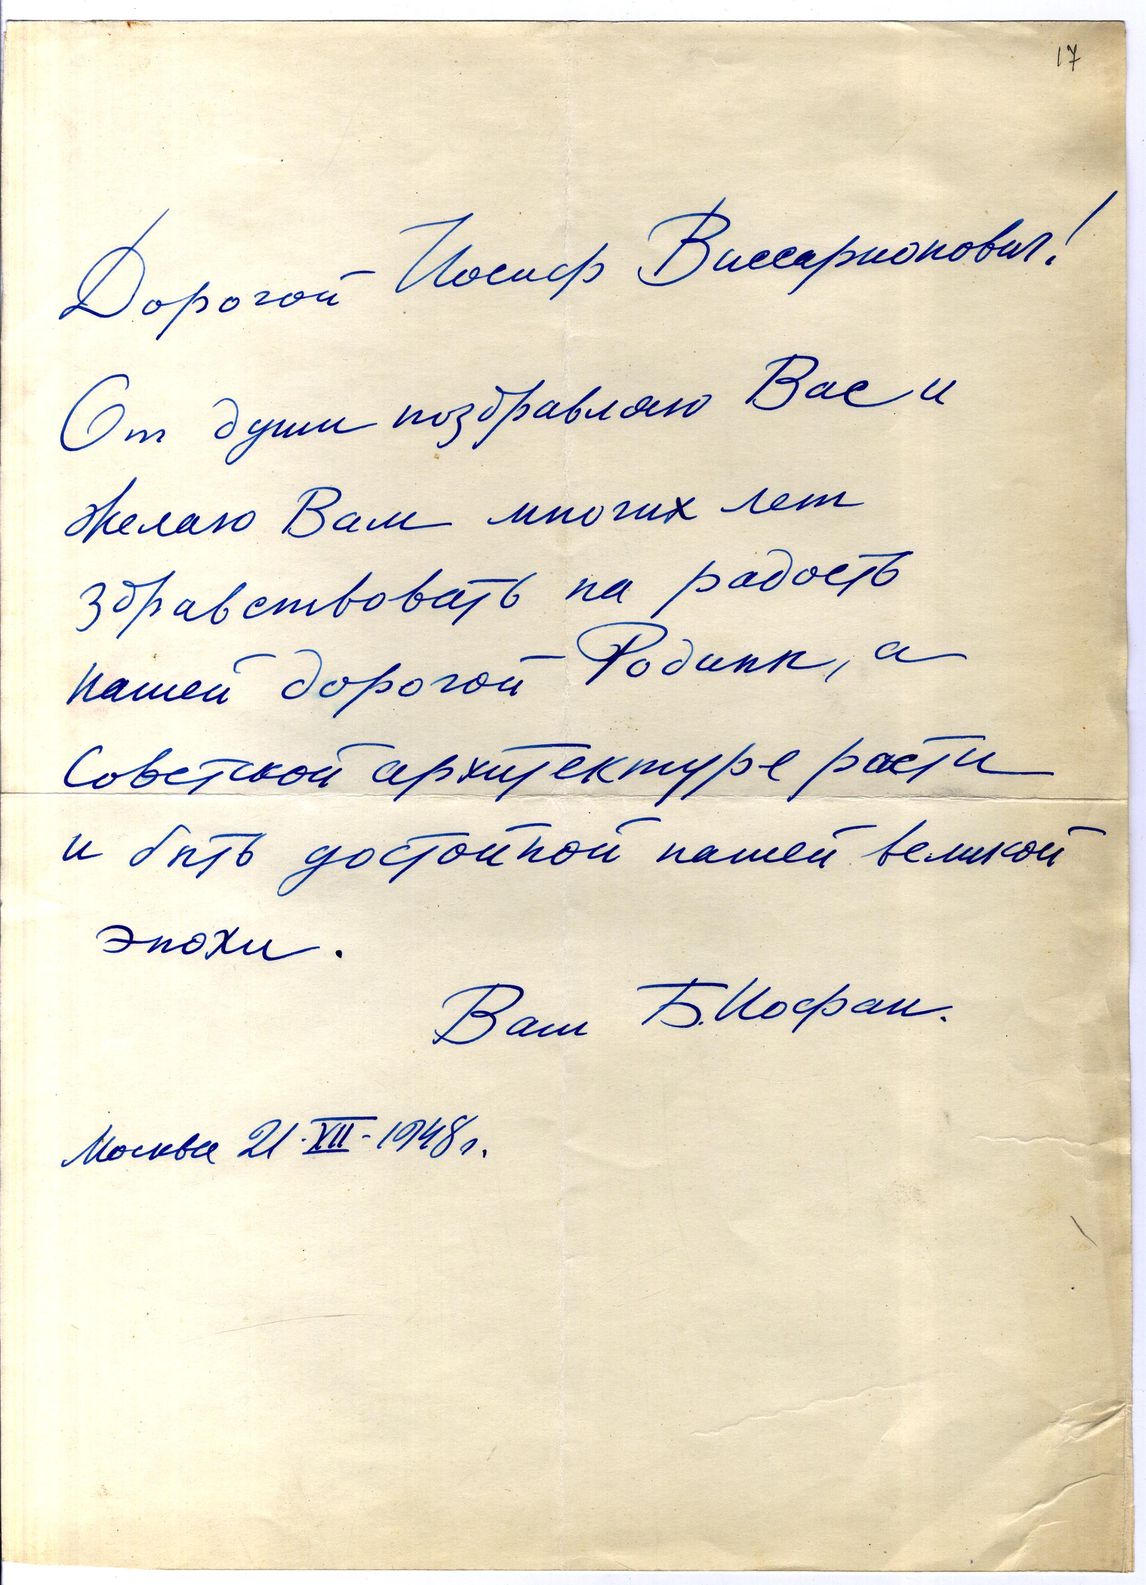 17
Дорогой Иосиф Виссарионович!
От души поздравляю Вас и
желаю Вам многих лет
здравствовать на радость
нашей дорогой Родины, а
Советской архитектуре расти
и быть достойной нашей великой
эпохи.
Ваш Б.Иофан.
Москва 21-XII-1948г.